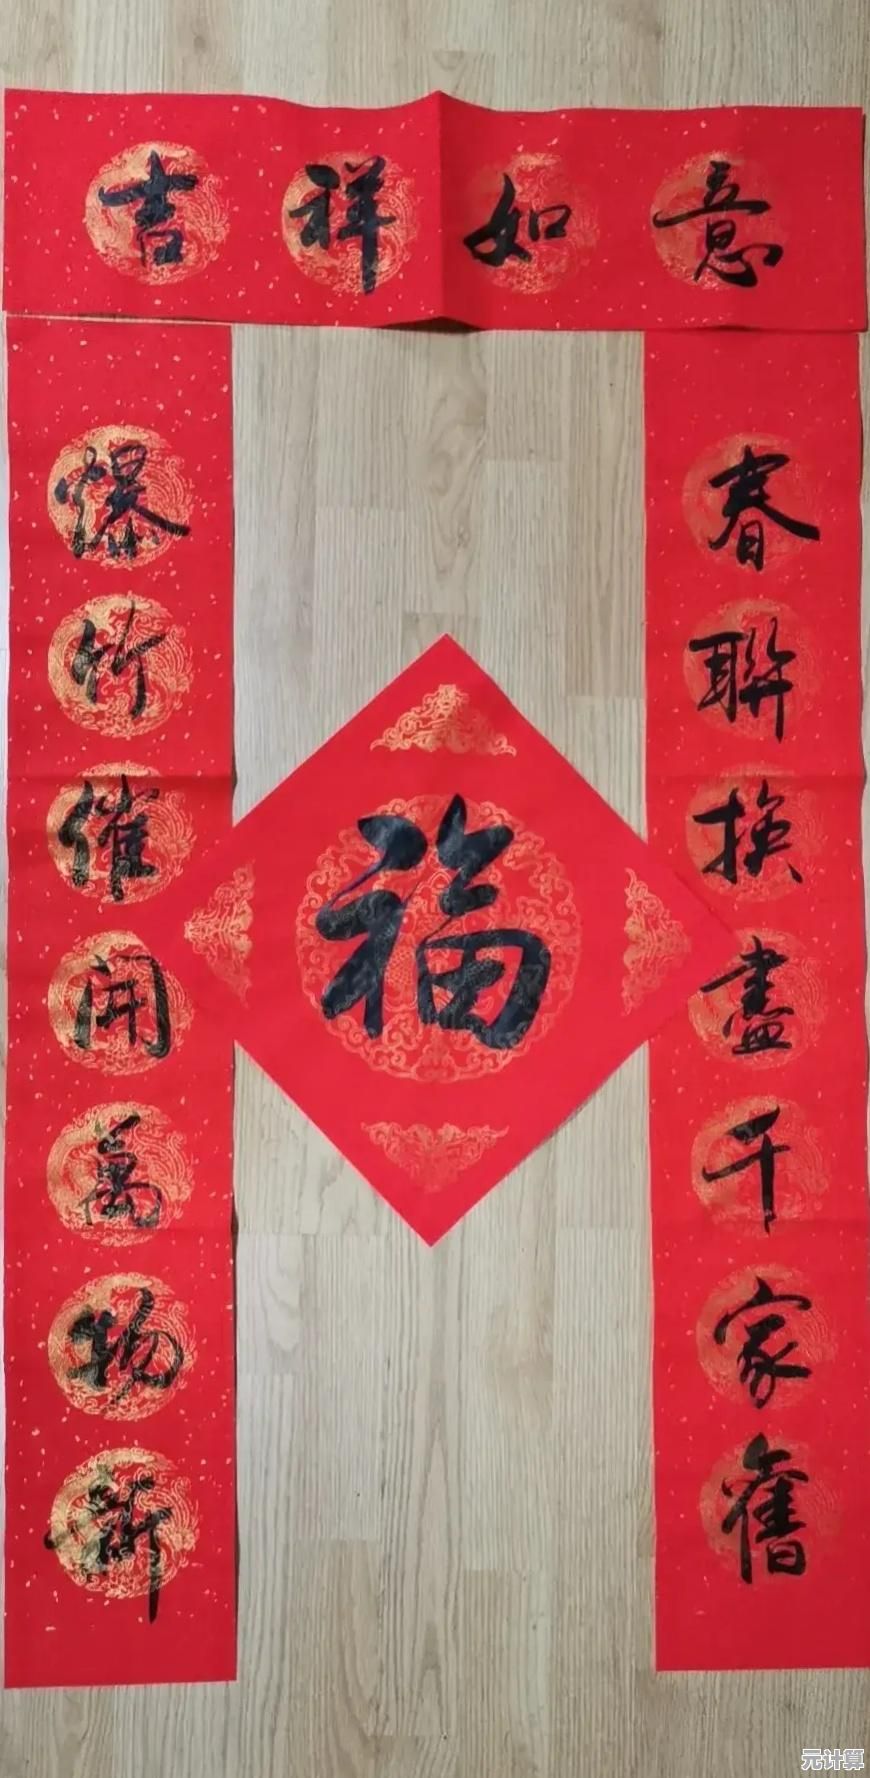 吉祥如意
春聯換盡千家舊
爆竹催開萬物新
福
元计算